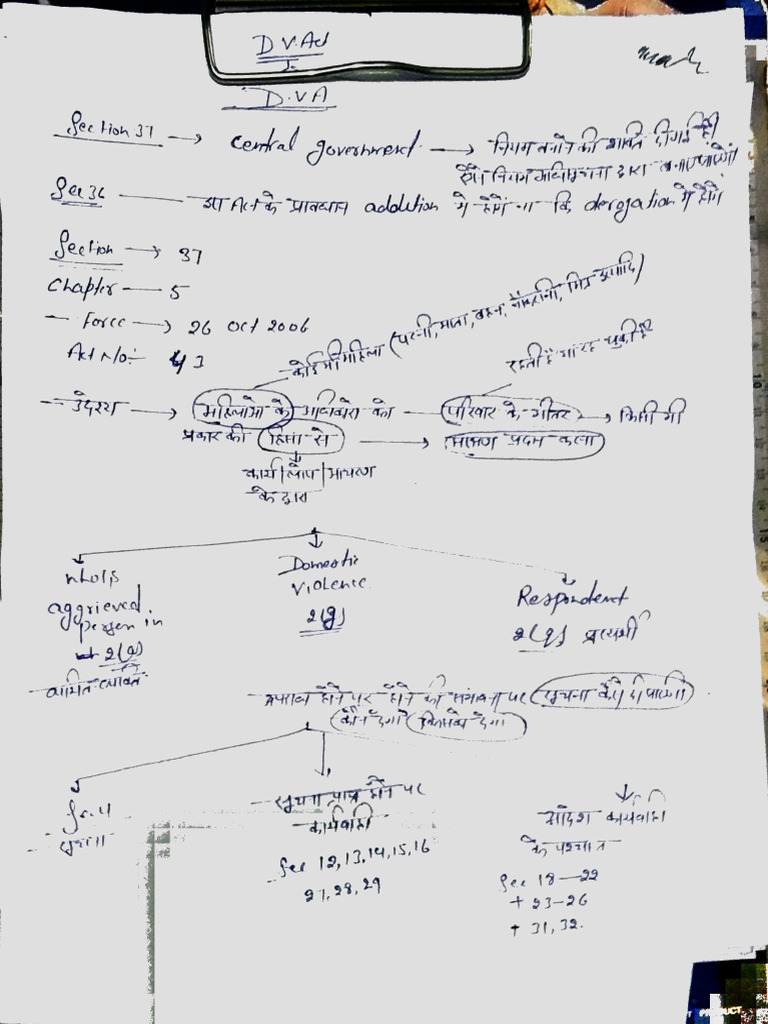 D.V.Act
D.V.A
Section 37 → central government → नियम बनाने की शक्ति दी गई है।
ऐसे नियम अधिसूचना द्वारा बनाए जाएंगे
Sec 36 — इस Act के प्रावधान addition में होंगे ना कि derogation में होंगे
Section → 37
Chapter — 5
- Force → 26 Oct 2006
Act No:- 43
कोई भी महिला (पत्नी, माता, बहन, नौकरानी, मित्र इत्यादि)
रहती है या रह चुकी है
- उदेश्य → महिलाओ के अधिकारो को — परिवार के भीतर → किसी भी
प्रकार की हिंसा से → संरक्षण प्रदान करना
कार्य/लोप/आचरण
के द्वारा
who is
aggrieved
person in
2(a)
व्यथित व्यक्ति
Domestic
Violence
2(g)
Respondent
2(q) प्रत्यर्थी
अपराध होने पर होने की संभावना पर सूचना कैसे दी जाएगी
कौन देगा किसको देगा
Sec 4
सूचना
- सूचना प्राप्त होने पर
कार्यवाही
Sec 12,13,14,15,16
27,28,29
आदेश कार्यवाही
के पश्चात
Sec 18—22
+ 23-26
+ 31,32.